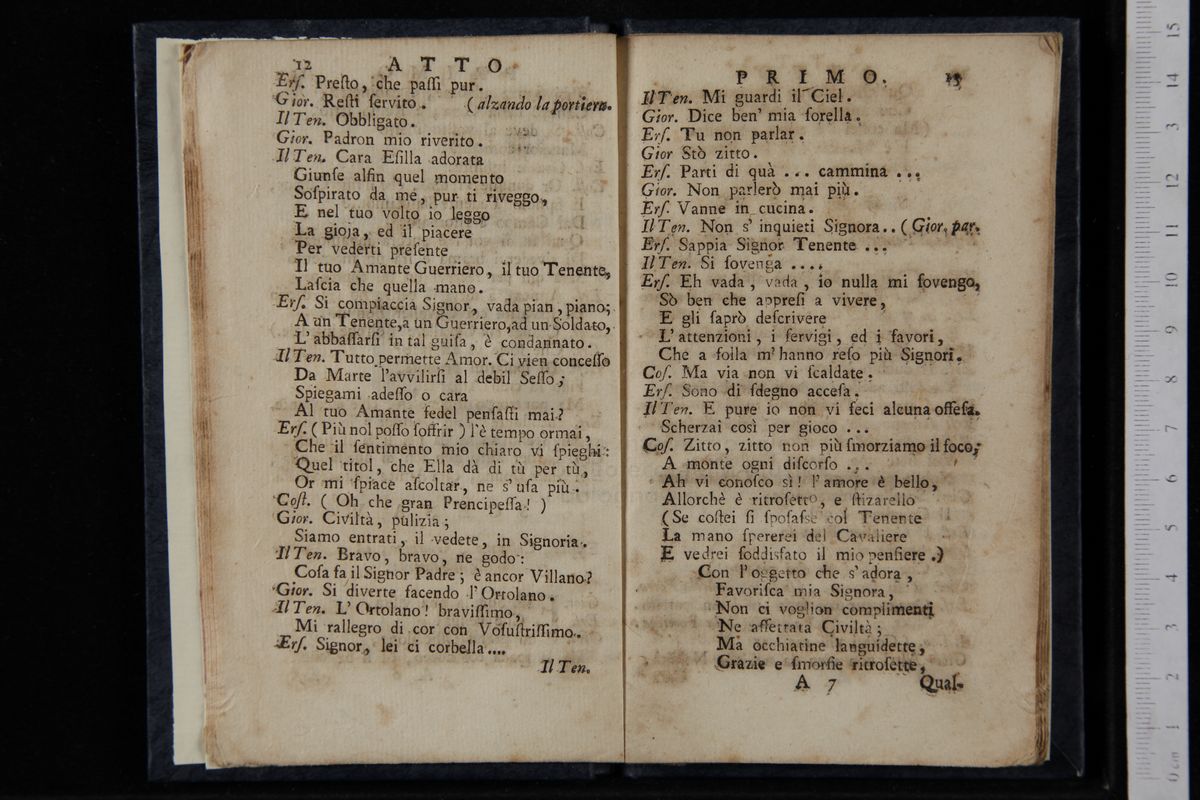 12 ATTO
Erſ. Preſto, che paſſi pur.
Gior. Reſti ſervito. (alzando la portiera.
Il Ten. Obbligato.
Gior. Padron mio riverito.
Il Ten. Cara Eſilla adorata
Giunſe alfin quel momento
Soſpirato da me, pur ti riveggo,
E nel tuo volto io leggo
La gioja, ed il piacere
Per vederti preſente
Il tuo Amante Guerriero, il tuo Tenente,
Laſcia che quella mano.
Erſ. Si compiaccia Signor, vada pian, piano;
A un Tenente, a un Guerriero, ad un Soldato,
L' abbaſſarſi in tal guiſa, è condannato.
Il Ten. Tutto permette Amor. Ci vien conceſſo
Da Marte l'avvilirſi al debil Seſſo;
Spiegami adeſſo o cara
Al tuo Amante fedel penſaſti mai?
Erſ. (Più nol poſſo ſoffrir) l'è tempo ormai,
Che il ſentimento mio chiaro vi ſpieghi:
Quel titol, che Ella dà di tù per tù,
Or mi ſpiace aſcoltar, ne s' uſa più.
Coſt. (Oh che gran Prencipeſſa!)
Gior. Civiltà, pulizia;
Siamo entrati, il vedete, in Signoria.
Il Ten. Bravo, bravo, ne godo:
Coſa fa il Signor Padre; è ancor Villano?
Gior. Si diverte facendo l' Ortolano.
Il Ten. L' Ortolano! braviſſimo,
Mi rallegro di cor con Voſuſtriſſimo.
Erſ. Signor, lei ci corbella....
Il Ten.
PRIMO. 13
Il Ten. Mi guardi il Ciel.
Gior. Dice ben' mia ſorella.
Erſ. Tu non parlar.
Gior Stò zitto.
Erſ. Parti di quà ... cammina ...
Gior. Non parlerò mai più.
Erſ. Vanne in cucina.
Il Ten. Non s' inquieti Signora.. (Gior. par.
Erſ. Sappia Signor Tenente ...
Il Ten. Si ſovenga ....
Erſ. Eh vada, vada, io nulla mi ſovengo,
Sò ben che appreſi a vivere,
E gli ſaprò deſcrivere
L' attenzioni, i ſervigi, ed i favori,
Che a foila m' hanno reſo più Signori.
Coſ. Ma via non vi ſcaldate.
Erſ. Sono di ſdegno acceſa.
Il Ten. E pure io non vi feci alcuna offeſa.
Scherzai così per gioco ...
Coſ. Zitto, zitto non più ſmorziamo il foco;
A monte ogni diſcorſo ...
Ah vi conoſco sì! l' amore è bello,
Allorchè è ritroſetto, e ſtizarello
(Se coſtei ſi ſpoſaſse col Tenente
La mano ſpererei del Cavaliere
E vedrei ſoddisfato il mio penſiere.)
Con l' oggetto che s' adora,
Favoriſca mia Signora,
Non ci voglion complimenti
Ne affettata Civiltà;
Ma occhiatine languidette,
Grazie e ſmorfie ritroſette,
A 7 Qual-